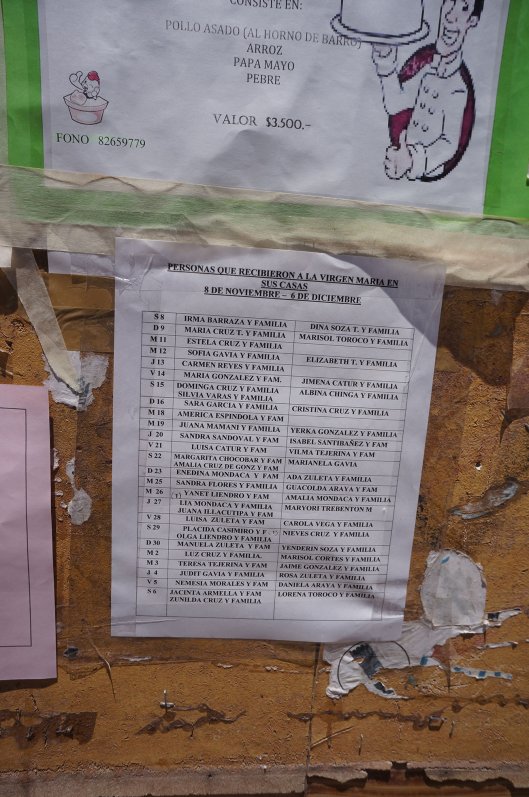 CONSISTE EN:
POLLO ASADO (AL HORNO DE BARRO)
ARROZ
PAPA MAYO
PEBRE
VALOR $3.500.-
FONO 82659779
PERSONAS QUE RECIBIERON A LA VIRGEN MARIA EN
SUS CASAS
8 DE NOVIEMBRE – 6 DE DICIEMBRE
S 8 IRMA BARRAZA Y FAMILIA DINA SOZA T. Y FAMILIA
D 9 MARIA CRUZ T. Y FAMILIA MARISOL TOROCO Y FAMILIA
M 11 ESTELA CRUZ Y FAMILIA
M 12 SOFIA GAVIA Y FAMILIA ELIZABETH T. Y FAMILIA
J 13 CARMEN REYES Y FAMILIA
V 14 MARIA GONZALEZ Y FAM. JIMENA CATUR Y FAMILIA
S 15 DOMINGA CRUZ Y FAMILIA ALBINA CHINGA Y FAMILIA
SILVIA VARAS Y FAMILIA
D 16 SARA GARCIA Y FAMILIA CRISTINA CRUZ Y FAMILIA
M 18 AMERICA ESPINDOLA Y FAM
M 19 JUANA MAMANI Y FAMILIA YERKA GONZALEZ Y FAMILIA
J 20 SANDRA SANDOVAL Y FAM ISABEL SANTIBAÑEZ Y FAM
V 21 LUISA CATUR Y FAM VILMA TEJERINA Y FAM
S 22 MARGARITA CHOCOBAR Y FAM MARIANELA GAVIA
AMALIA CRUZ DE GONZ Y FAM
D 23 ENEDINA MONDACA Y FAM ADA ZULETA Y FAMILIA
M 25 SANDRA FLORES Y FAMILIA GUACOLDA ARAYA Y FAM
M 26 YANET LIENDRO Y FAM AMALIA MONDACA Y FAMILIA
J 27 LIA MONDACA Y FAMILIA MARYORI TREBENTON M
JUANA ILLACUTIPA Y FAM
V 28 LUISA ZULETA Y FAM CAROLA VEGA Y FAMILIA
S 29 PLACIDA CASIMIRO Y F NIEVES CRUZ Y FAMILIA
OLGA LIENDRO Y FAMILIA
D 30 MANUELA ZULETA Y FAM YENDERIN SOZA Y FAMILIA
M 2 LUZ CRUZ Y FAMILIA. MARISOL CORTES Y FAMILIA
M 3 TERESA TEJERINA Y FAM JAIME GONZALEZ Y FAMILIA
J 4 JUDIT GAVIA Y FAMILIA ROSA ZULETA Y FAMILIA
V 5 NEMESIA MORALES Y FAM DANIELA ARAYA Y FAMILIA
S 6 JACINTA ARMELLA Y FAM LORENA TOROCO Y FAMILIA
ZUNILDA CRUZ Y FAMILIA